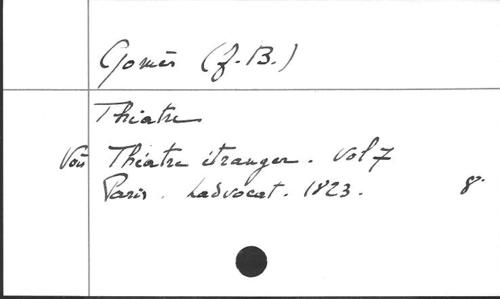 Gomès (J. B.)
Théatre
Voir Théatre étranger. Vol 7
Paris. Ladvocat. 1823. 8°